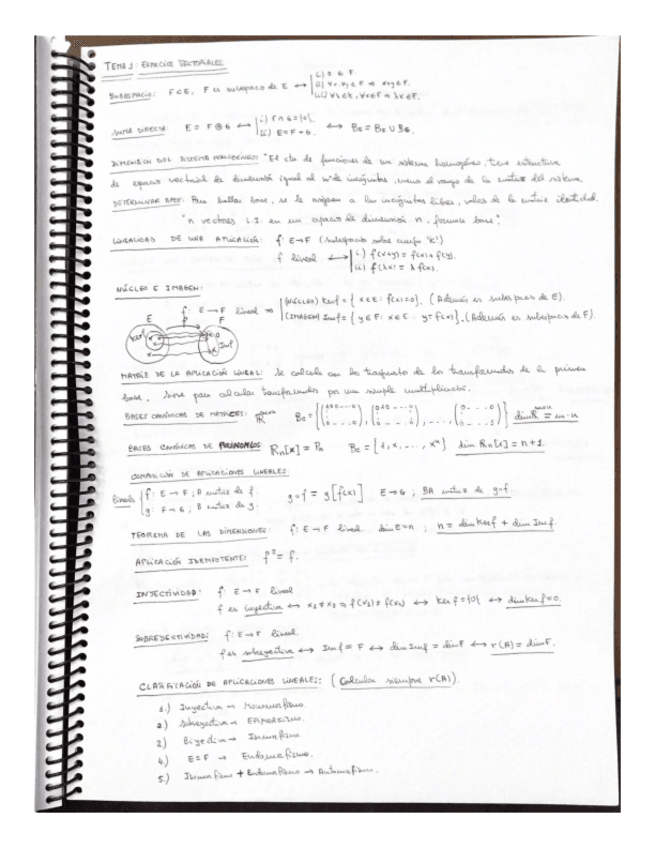 TEMA 1: ESPACIOS VECTORIALES
SUBESPACIO: F⊂E, F es subespacio de E ↔ | i) 0 ∈ F.
ii) ∀x,y∈F ⇒ x+y∈F.
iii) ∀λ∈K, ∀x∈F ⇒ λx∈F.
SUMA DIRECTA: E = F ⊕ G ↔ | i) F∩G={0}. ↔ B_E = B_F ∪ B_G.
ii) E=F+G.
DIMENSIÓN DEL SISTEMA HOMOGÉNEO: "El cto de funciones de un sistema homogéneo, tiene estructura
de espacio vectorial de dimensión igual al nº de incógnitas, menos el rango de la matriz del sistema.
DETERMINAR BASE: Para hallar base, se le asignan a las incógnitas libres, valores de la matriz identidad.
"n vectores L.I. en un espacio de dimensión n, forman base".
LINEALIDAD DE UNA APLICACIÓN: f: E→F (subespacio sobre cuerpo 'K')
f lineal ↔ | i) f(x+y) = f(x)+f(y).
ii) f(λx) = λ f(x).
NÚCLEO E IMAGEN:
f: E→F lineal ⇒ | (NÚCLEO) Kerf = { x∈E: f(x)=0}. (Además es subespacio de E).
(IMAGEN) Imf = { y∈F: x∈E: y=f(x)}. (Además es subespacio de F).
E f F
Kerf 0
Imf
MATRIZ DE LA APLICACIÓN LINEAL: Se calcula con los traspuesto de los transformados de la primera
base, Sirve para calcular transformados por una simple multiplicación.
BASES CANÓNICAS DE MATRICES: ℝ^(m×n) Bc = {(1 0 0 ... 0 / 0 ... 0), (0 1 0 ... 0 / 0 ... 0), ..., (0 ... 0 / 0 ... 1)} dim ℝ^(m×n) = m·n
BASES CANÓNICAS DE POLINOMIOS ℝn[x] = Pn Bc = {1, x, ..., xⁿ} dim ℝn[x] = n+1.
COMPOSICIÓN DE APLICACIONES LINEALES:
lineales { f: E→F; A matriz de f. g∘f = g[f(x)] E→G; BA matriz de g∘f.
g: F→G; B matriz de g.
TEOREMA DE LAS DIMENSIONES: f: E→F lineal. dim E=n; n = dim Kerf + dim Imf.
APLICACIÓN IDEMPOTENTE: f² = f.
INYECTIVIDAD: f: E→F lineal
f es inyectiva ↔ x₁≠x₂ ⇒ f(x₁)≠f(x₂) ↔ Ker f={0} ↔ dim Kerf=0.
SOBREYECTIVIDAD: f: E→F lineal.
f es sobreyectiva ↔ Imf = F ↔ dim Imf = dim F ↔ r(A) = dim F.
CLASIFICACIÓN DE APLICACIONES LINEALES: (Calcular siempre r(A)).
1.) Inyectiva → Monomorfismo.
2.) Sobreyectiva → Epimorfismo.
3) Biyectiva → Isomorfismo
4.) E=F → Endomorfismo.
5.) Isomorfismo + Endomorfismo → Automorfismo.